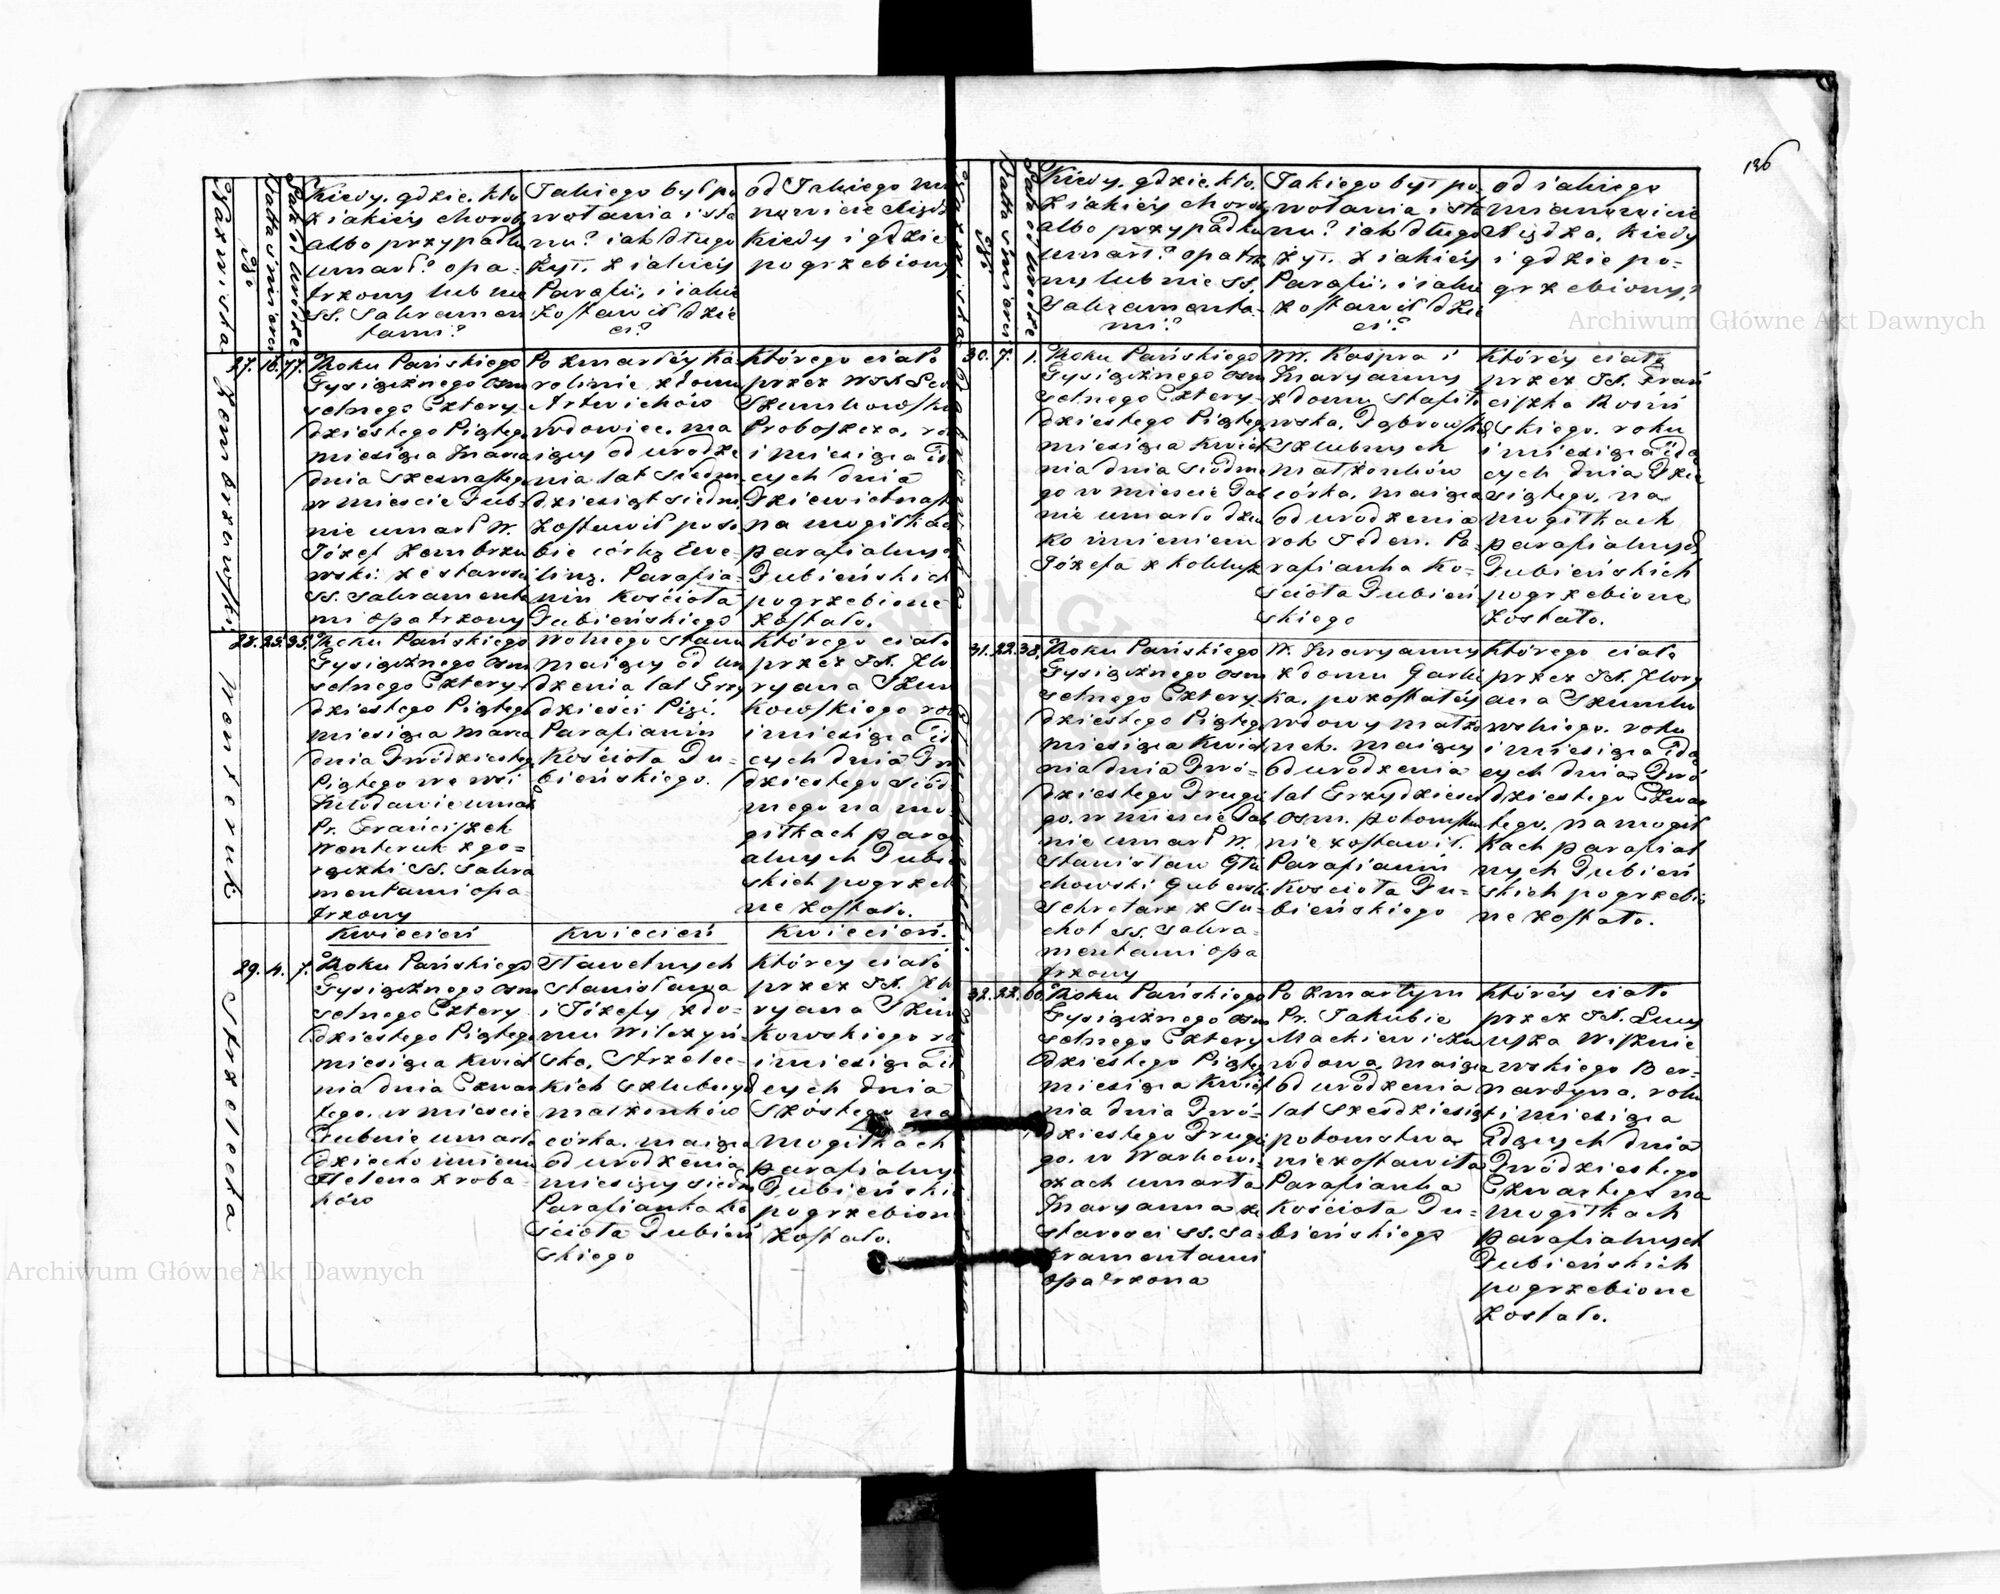 126
Nazwiska
No
Datta śmierci
Lata od urodze:
Kiedy, gdzie, kto
z iakiéy chorob
albo przypadku
umarł? opa-
trzony lub nie
SS. Sakramen
tami?
Jakiego był po
wołania i sta
nu? iak długo
żył. z iakiéy
Parafii, i iakie
zostawił dzie
ci?
od Jakiego mia
nowicie Xiędz
Kiedy i gdzie
pogrzebiony
Zembrzuwski
27.
16.
77.
Roku Pańskiego
Tysiącznego Osm
setnego Cztery
dziestego Piąteg
miesiąca Marca
dnia Szesnasteg
w mieście Dub-
nie umarł W.
Józef Zembrzu
wski ze starości
SS. Sakramenta
mi opatrzony
Po zmarłéy Ka
rolinie z domu
Artwichów
wdowiec, ma
iący od urodze
nia lat Siedm
dziesiąt siedm.
Zostawił po so
bie córkę Ewe-
linę. Parafia-
nin Kościoła
Dubieńskiego
którego ciało
przez WJX Se
Szumkowsk
Proboszcza, ro
i miesiąca id
cych dnia
Dziewietnast
na mogiłkac
parafialnyc
Dubieńskich
pogrzebione
Zostało.
Wonteruk
28.
25.
35.
Roku Pańskiego
Tysiącznego Osm
setnego Cztery-
dziestego Piąteg
miesiąca Marca
dnia Dwódziesteg
Piątego we wsi
Kłodawie umar
Pr. Franciszek
Wonteruk z go=
rączki SS. Sakra
mentami opa
trzony
Wolnego stanu
maiący od uro
dzenia lat Trzy
dzieści Pięć.
Parafianin
Kościoła Du-
bieńskiego.
którego ciało
przez JX. Flo
ryana Szum
kowskiego ro
i miesiąca id
cych dnia Dw
dziestego siód
mego na mo
giłkach para
alnych Dubie
skich pogrzeb
ne zostało.
Kwiecień
Kwiecień
Kwiecień.
Strzelecka
29.
4.
7.
Roku Pańskiego
Tysiącznego Osm
setnego Cztery-
dziestego Piąteg
miesiąca Kwiet
nia dnia Czwar
tego. w mieście
Dubnie umarło
dziecko imieniem
Helena z roba-
ków
Sławetnych
Stanisława
i Józefy z do-
mu Wilczyń
ska, Strzelec-
kich szlubnych
małżonków
córka. maiąca
od urodzenia
miesięcy siedm
Parafianka Ko
ścioła Dubień
skiego
którey ciało
przez JX. Flo
ryana Szum
kowskiego ro
i miesiąca id
cych dnia
Szóstego na
mogiłkach
parafialny
Dubieńskic
pogrzebion
Zostało.
Nazwiska
No
Datta śmierci
Lata od urodze
Kiedy, gdzie, kto,
z iakiéy chorob
albo przypadku
umarł? opatrzo
ny lub nie SS.
Sakramenta-
mi?
Jakiego był po
wołania i sta
nu? iak długo
żył. z iakiéy
Parafii, i iakie
zostawił dzie
ci?
od iakiego
mianowicie
Xiędza, Kiedy
i gdzie po=
grzebiony?
30.
7.
1.
Roku Pańskiego
Tysiącznego Osm
setnego Cztery-
dziestego Piąteg
miesiąca Kwiet
nia dnia Siódme
go w mieście Dub
nie umarło dziec
ko imieniem
Józefa z kokluszu
WW. Kaspra i
Maryanny
z domu
Dąbrowskich
szlubnych
małżonków
córka, maiąca
od urodzenia
rok Jeden. Pa
rafianka Ko-
ścioła Dubień
skiego
któréy ciało
przez JX. Fran
ciszka Rosiń
skiego. roku
i miesiąca idą
cych dnia Dzie
siątego, na
mogiłkach
parafialnych
Dubieńskich
pogrzebione
Zostało.
31.
22.
38.
Roku Pańskiego
Tysiącznego Osm
setnego Cztery-
dziestego Piąteg
miesiąca Kwiet
nia dnia Dwó-
dziestego Drugie
go. w mieście Dub
nie umarł W.
Stanisław Głu
chowski Gubersk
Sekretarz z Su-
chot SS. Sakra-
mentami opa
trzony
W. Maryanny
z domu
pozostałéy
wdowy małżo
nek. maiący
od urodzenia
lat Trzydzieści
Osm. potomstwa
nie zostawił.
Parafianin
Kościoła Du=
bieńskiego
którego ciało
przez JX. Flory
ana Szumko
wskiego. roku
i miesiąca idą
cych dnia Dwó
dziestego Czwar
tego, na mogił
kach parafial
nych Dubień
skich pogrzebio
ne zostało.
32.
22.
60.
Roku Pańskiego
Tysiącznego Osm
setnego Cztery
dziestego Piąteg
miesiąca Kwiet
nia dnia Dwó-
dziestego Drugie
go. w Warkowi-
czach umarła
Maryanna ze
starości SS. Sa-
kramentami
opatrzona
Po zmarłym
Pr. Jakubie
Mackiewiczu
wdowa, maiąca
od urodzenia
lat sześdziesiąt
potomstwa
nie zostawiła
Parafianka
Kościoła Du=
bieńskiego
któréy ciało
przez JX. Łuc
Wisznie
wskiego Ber-
nardyna, roku
i miesiąca
idących dnia
Dwódziestego
Czwartego na
mogiłkach
parafialnych
Dubieńskich
pogrzebione
Zostało.
Archiwum Główne Akt Dawnych
Archiwum Główne Akt Dawnych